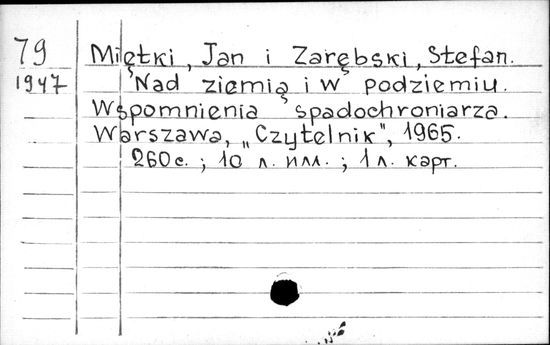 79
1947
Miętki, Jan i Zarębski, Stefan.
Nad ziemią i w podziemiu.
Wspomnienia spadochroniarza.
Warszawa, „Czytelnik", 1965.
260 с. ; 10 л. илл. ; 1 л. карт.